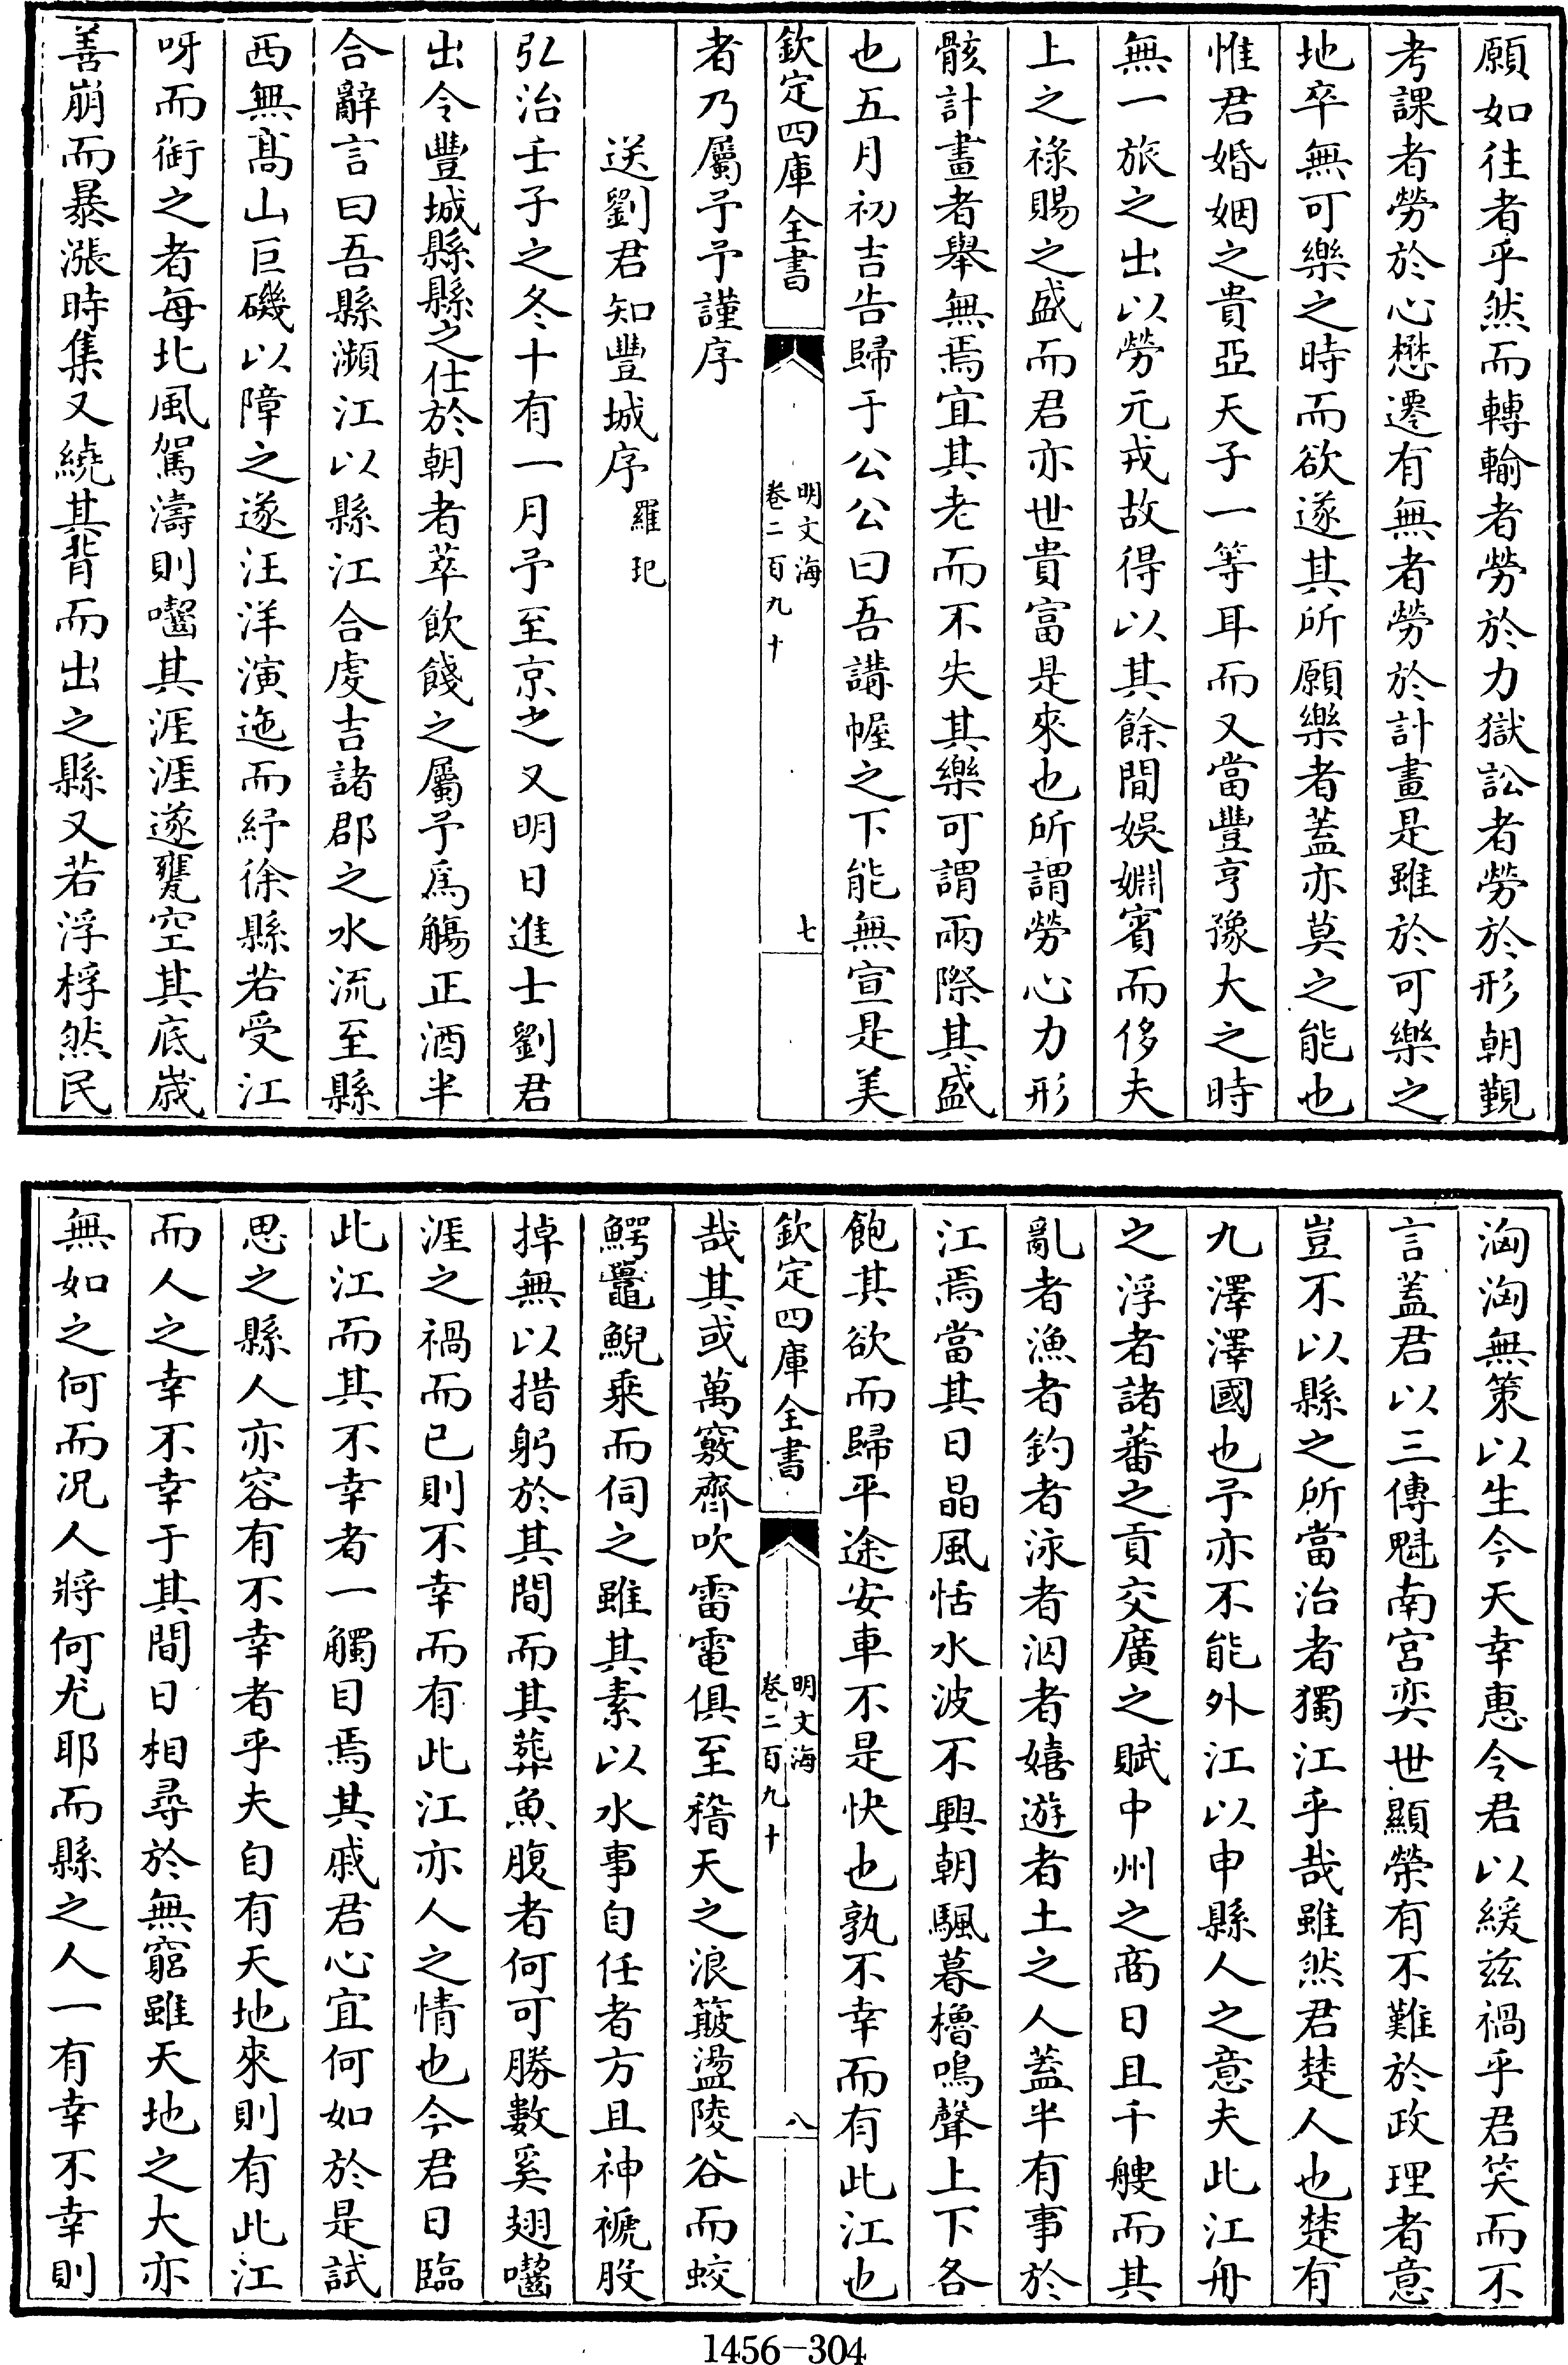 願如往者乎然而轉輸者勞於力獄訟者勞於形朝覲
考課者勞於心懋遷有無者勞於計畫是雖於可樂之
地卒無可樂之時而欲遂其所願樂者蓋亦莫之能也
惟君婚姻之貴亞天子一等耳而又當豐亨豫大之時
無一旅之出以勞元戎故得以其餘間娛嫺賓而侈夫
上之祿賜之盛而君亦世貴富是來也所謂勞心力形
骸計畫者舉無焉宜其老而不失其樂可謂兩際其盛
也五月初吉告歸于公公曰吾講幄之下能無宣是美
欽定四庫全書
明文海
卷二百九十
七
者乃屬予予謹序
送劉君知豐城序羅玘
弘治壬子之冬十有一月予至京之又明日進士劉君
出令豐城縣縣之仕於朝者萃飲餞之屬予為觴正酒半
合辭言曰吾縣瀕江以縣江合虔吉諸郡之水流至縣
西無髙山巨磯以障之遂汪洋演迤而紓徐縣若受江
呀而銜之者每北風駕濤則囓其涯涯遂甕空其底歲
善崩而暴漲時集又繞其背而出之縣又若浮桴然民
洶洶無策以生今天幸惠令君以緩兹禍乎君笑而不
言蓋君以三傳魁南宮奕世顯榮有不難於政理者意
豈不以縣之所當治者獨江乎哉雖然君楚人也楚有
九澤澤國也予亦不能外江以申縣人之意夫此江舟
之浮者諸蕃之貢交廣之賦中州之商日且千艘而其
亂者漁者釣者泳者泅者嬉遊者土之人蓋半有事於
江焉當其日晶風恬水波不興朝颿暮櫓鳴聲上下各
飽其欲而歸平途安車不是快也孰不幸而有此江也
欽定四庫全書
明文海
卷二百九十
八
哉其或萬竅齊吹雷電俱至稽天之浪簸盪陵谷而蛟
鰐鼉鯢乘而伺之雖其素以水事自任者方且神褫股
掉無以措躬於其間而其葬魚腹者何可勝數奚翅囓
涯之禍而已則不幸而有此江亦人之情也今君日臨
此江而其不幸者一觸目焉其戚君心宜何如於是試
思之縣人亦容有不幸者乎夫自有天地來則有此江
而人之幸不幸于其間日相尋於無窮雖天地之大亦
無如之何而况人將何尤耶而縣之人一有幸不幸則
1456-304